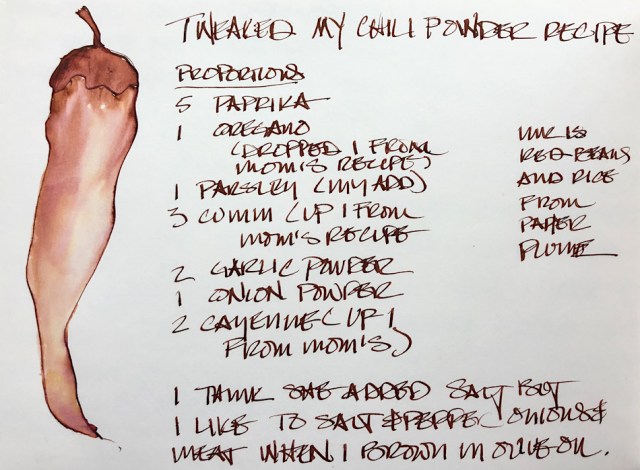 TWEAKED MY CHILI POWDER RECIPE
PROPORTIONS
5 PAPRIKA
1 OREGANO
(DROPPED 1 FROM
MOM'S RECIPE)
1 PARSLEY (MY ADD)
3 CUMIN (UP 1 FROM
MOM'S RECIPE
2 GARLIC POWDER
1 ONION POWDER
2 CAYENNE (UP 1
FROM MOM'S)
INK IS
RED BEANS
AND RICE
FROM
PAPER
PLUME
I THINK SHE ADDED SALT BUT
I LIKE TO SALT & PEPPER ONIONS &
MEAT WHEN I BROWN IN OLIVE OIL.